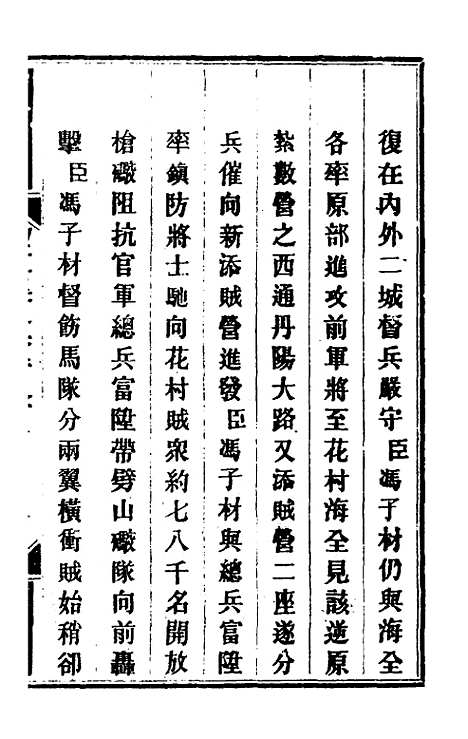 復在內外二城督兵嚴守臣馮子材仍與海全
各率原部進攻前軍將至花村海全見該逆原
紮數營之西通丹陽大路又添賊營二座遂分
兵催向新添賊營進發臣馮子材與總兵富陞
率鎮防將士馳向花村賊衆約七八千名開放
槍礮阻抗官軍總兵富陞帶劈山礮隊向前轟
擊臣馮子材督飭馬隊分兩翼橫衝賊始稍卻